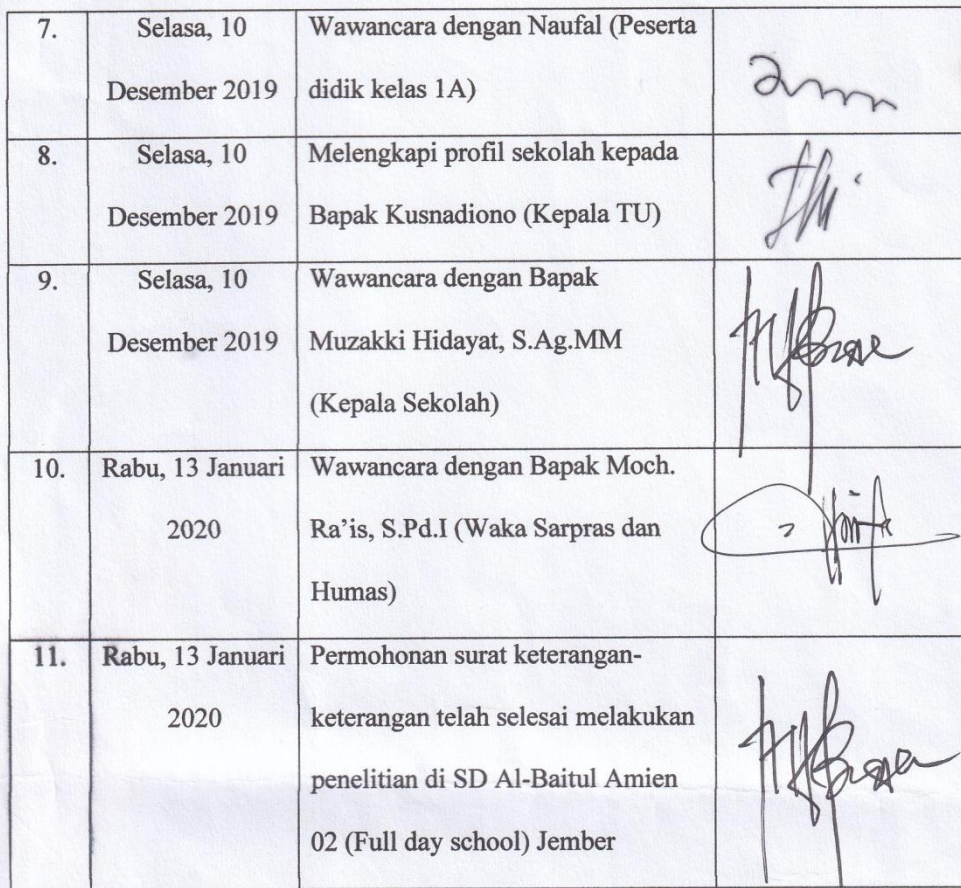 7.
Selasa, 10
Desember 2019
Wawancara dengan Naufal (Peserta
didik kelas 1A)
8.
Selasa, 10
Desember 2019
Melengkapi profil sekolah kepada
Bapak Kusnadiono (Kepala TU)
9.
Selasa, 10
Desember 2019
Wawancara dengan Bapak
Muzakki Hidayat, S.Ag.MM
(Kepala Sekolah)
10.
Rabu, 13 Januari
2020
Wawancara dengan Bapak Moch.
Ra'is, S.Pd.I (Waka Sarpras dan
Humas)
11.
Rabu, 13 Januari
2020
Permohonan surat keterangan-
keterangan telah selesai melakukan
penelitian di SD Al-Baitul Amien
02 (Full day school) Jember